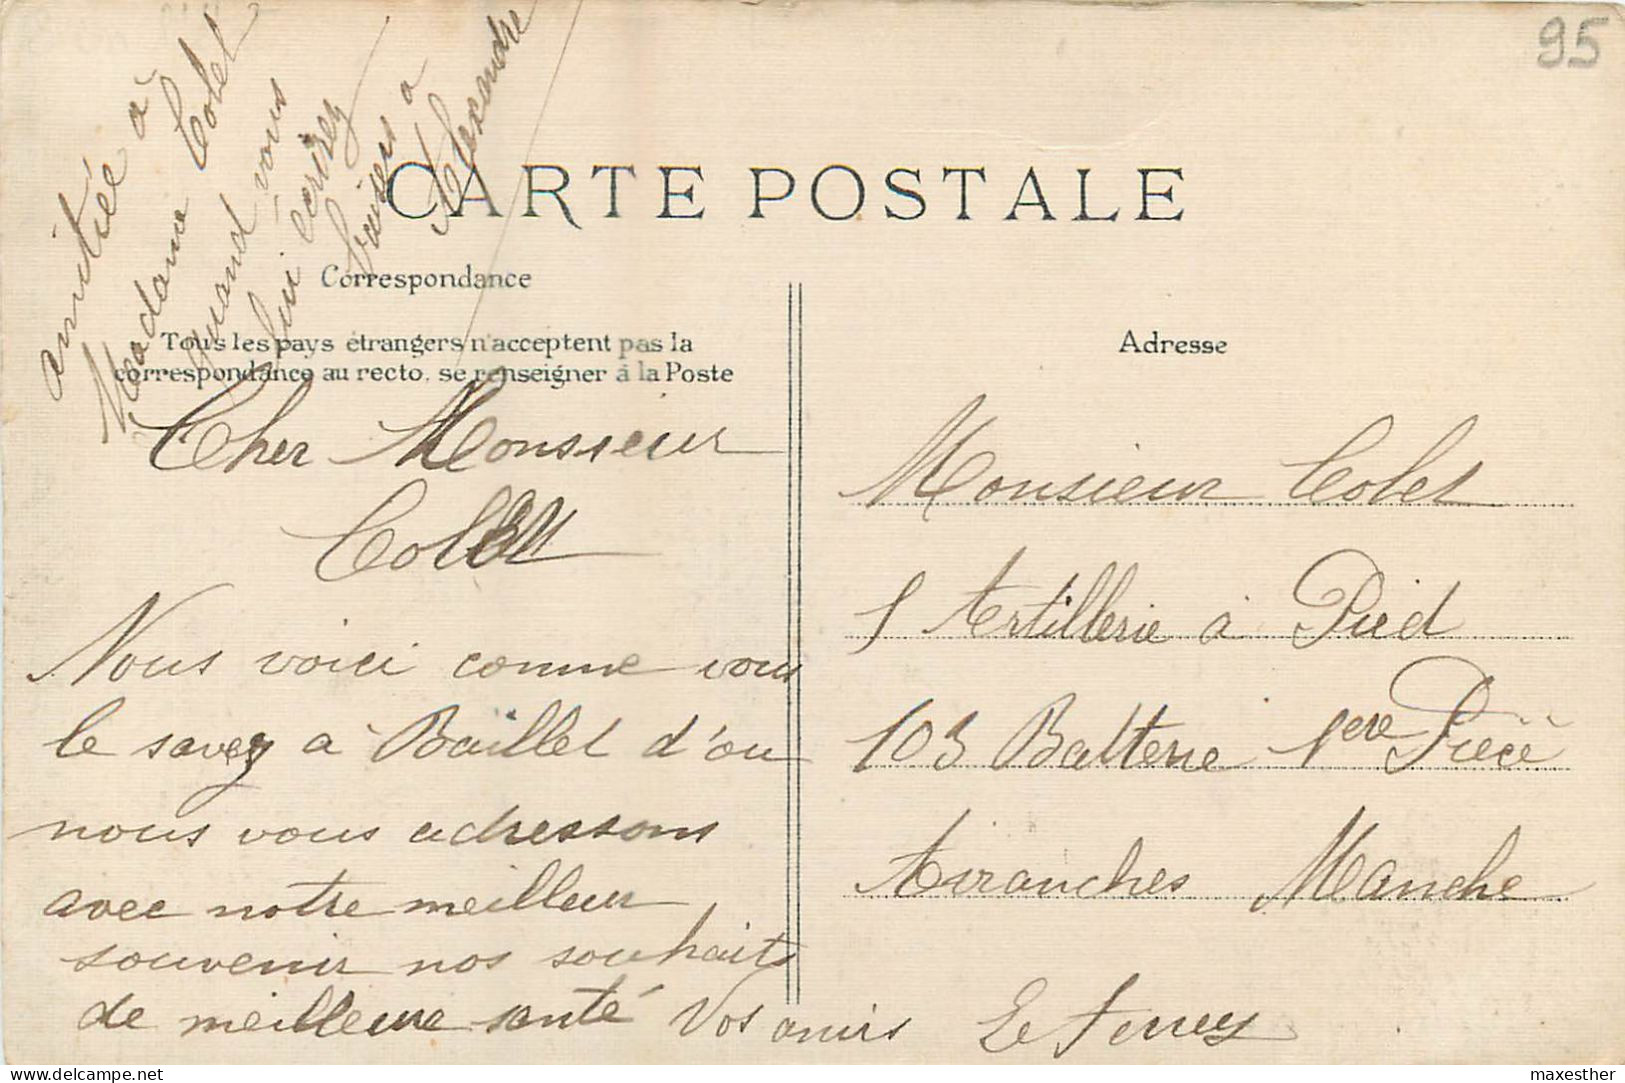 95
amitiée à
Madame Colet
quand vous
lui écrirez
baisers a
Alexandre
CARTE POSTALE
Correspondance
Tous les pays étrangers n'acceptent pas la
correspondance au recto, se renseigner à la Poste
Adresse
Cher Monsieur
Colet
Nous voici comme vous
le savez a Baillet d'ou
nous vous adressons
avec notre meilleur
souvenir nos souhaits
de meilleure santé Vos amis
Monsieur Colet
1 Artillerie à Pied
103 Batterie 1ere Piece
Avranches Manche
delcampe.net
maxesther